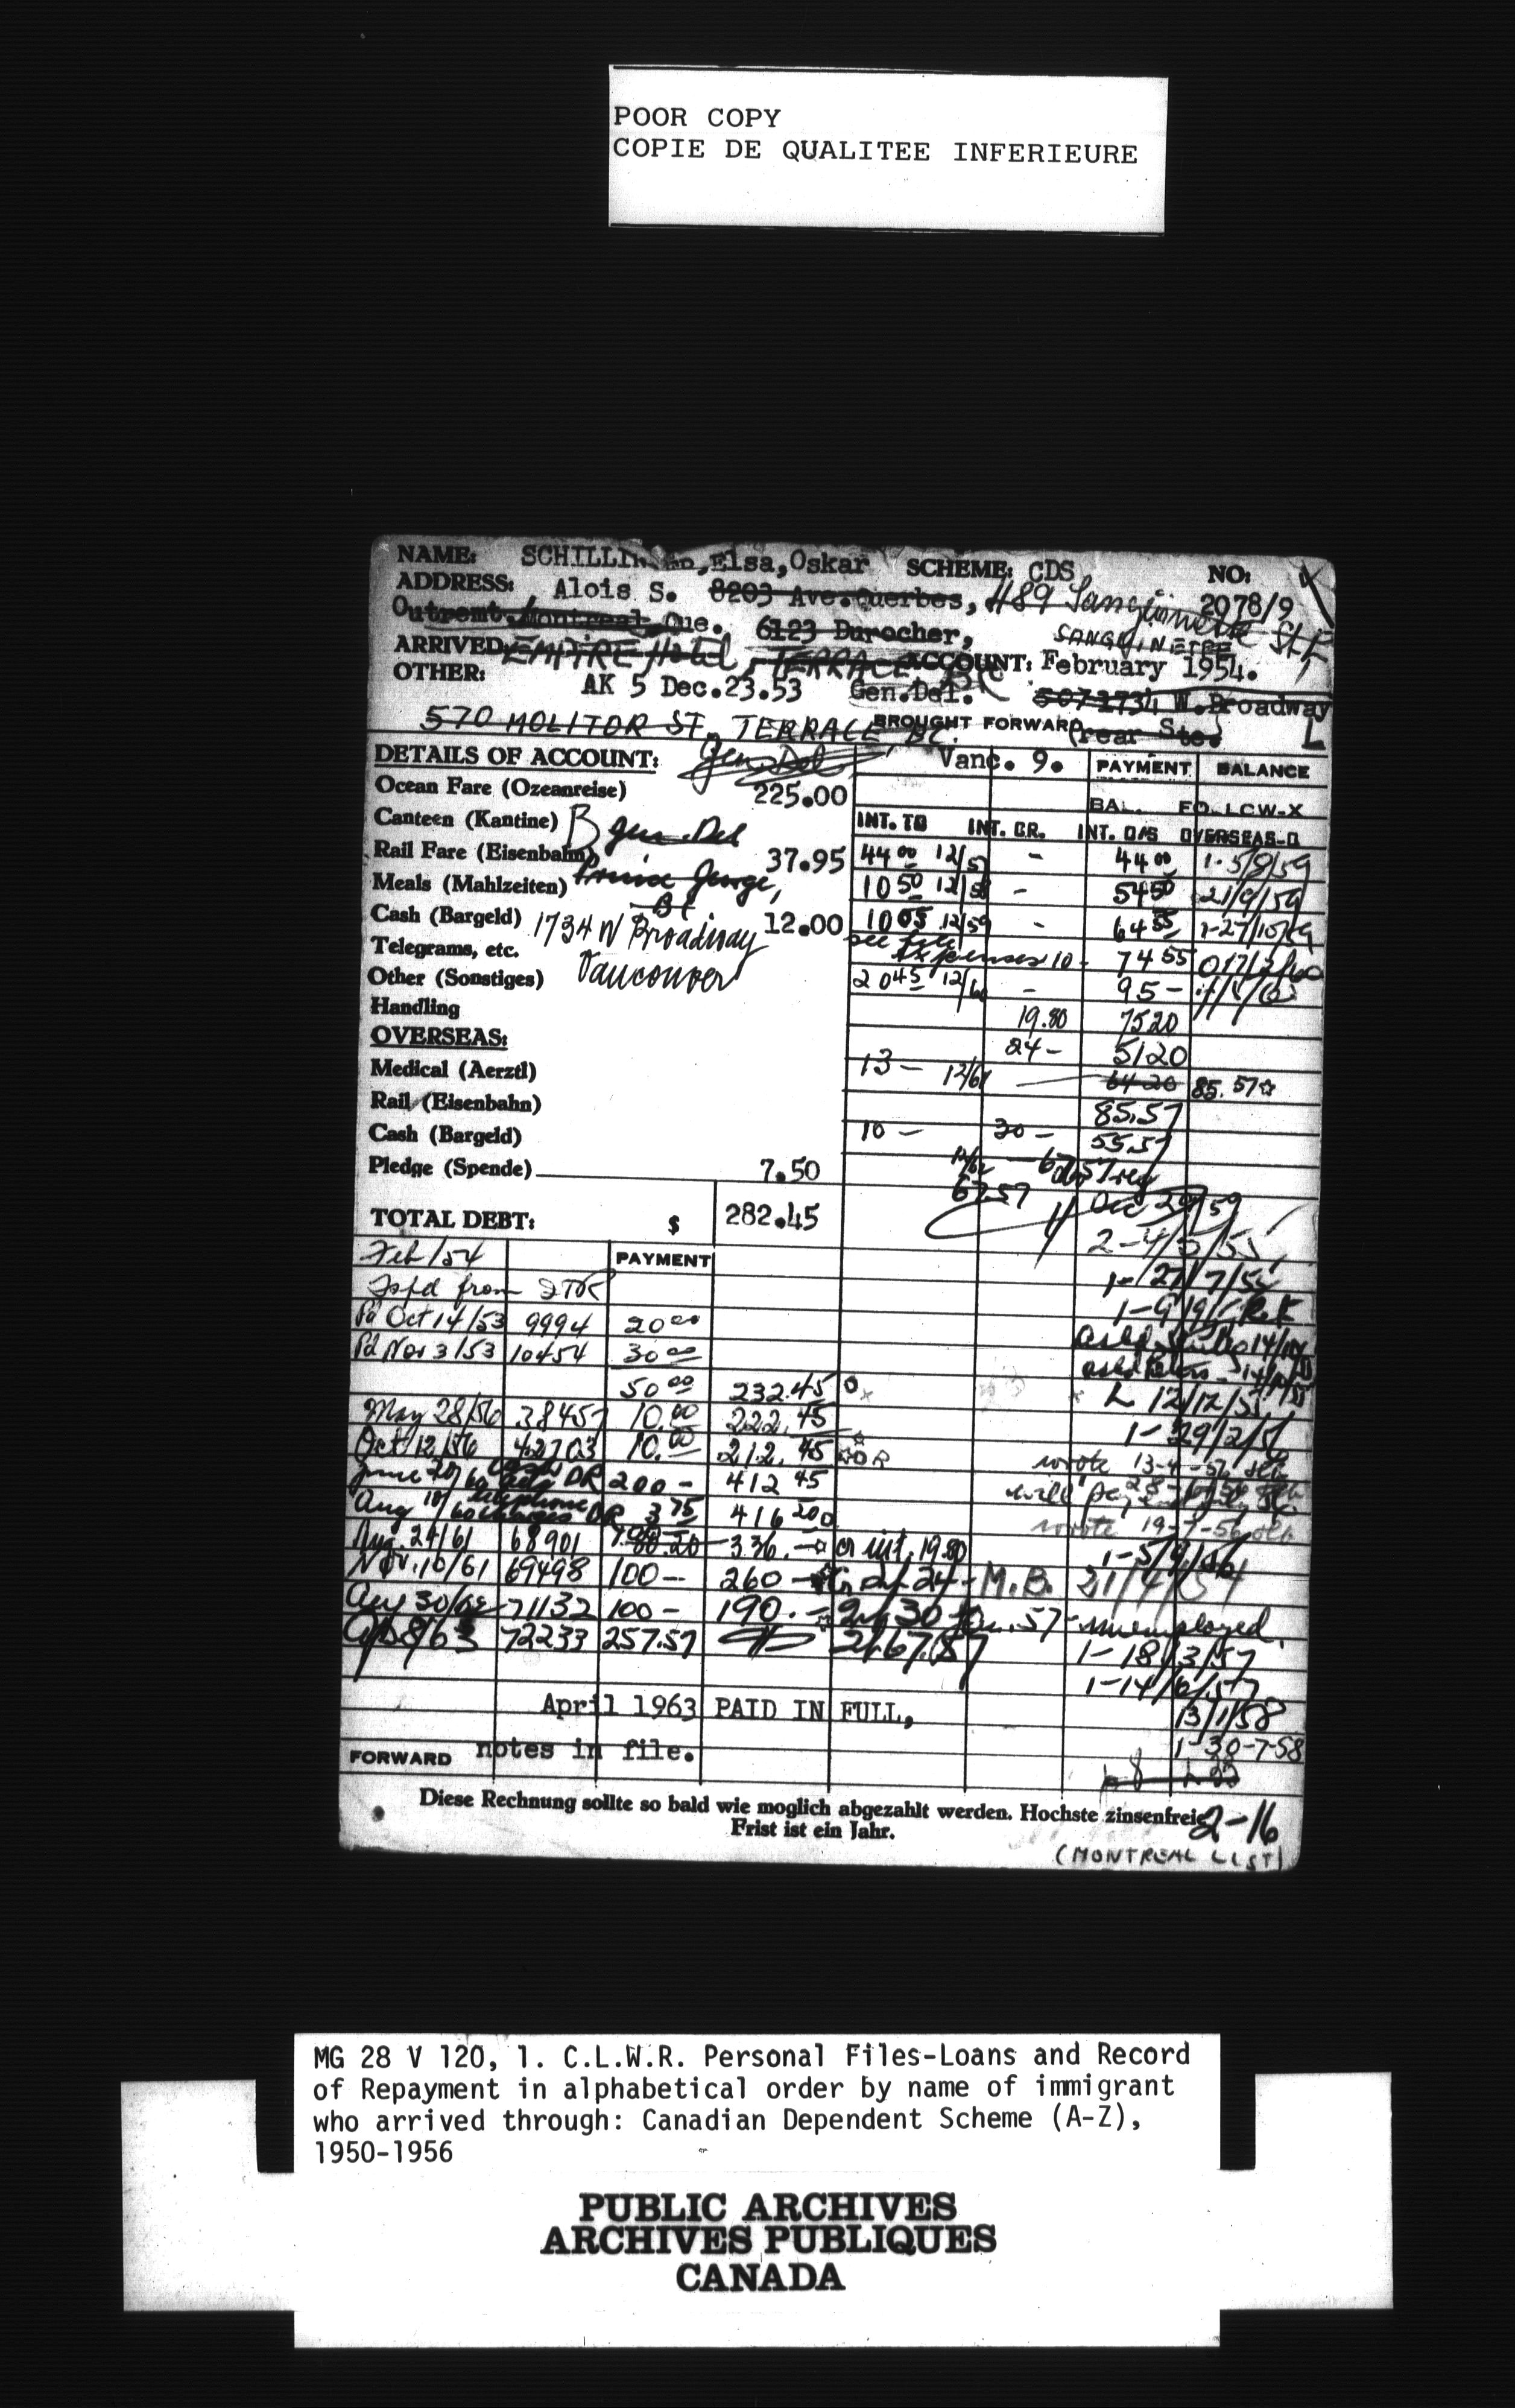 POOR COPY
COPIE DE QUALITEE INFERIEURE
NAME: Elsa, Oskar SCHEME: CDS NO:
ADDRESS: Alois S. 8203 Ave. Querbes, 2078/9
Outremt, Montreal, Que. 6123 Durocher, SANGUINETTE
ARRIVED: EMPIRE Hotel, TERRACE BC ACCOUNT: February 1954.
OTHER: AK 5 Dec.23.53 Gen.Del. W. Broadway
570 MOLITOR ST. TERRACE BC. BROUGHT FORWARD (rear Ste. L
DETAILS OF ACCOUNT: Gen. Del. Vanc. 9. PAYMENT BALANCE
Ocean Fare (Ozeanreise) 225.00 BAL. FO. LCW-X
Canteen (Kantine) Gen. Del INT. TO INT. CR. INT. O/S OVERSEAS-O
Rail Fare (Eisenbahn) 37.95 44 00 12/57 - 44 00 1-5/8/59
Meals (Mahlzeiten) Prince George, BC. 10 50 12/58 - 54 50 21/9/59
Cash (Bargeld) 1734 W Broadway 12.00 10 05 12/59 - 64 55 1-27/10/59
Telegrams, etc. Vancouver see file expenses 10- 74 55
Other (Sonstiges) 20 45 12/60 - 95-
Handling 19.80 75 20
OVERSEAS: 24- 51 20
Medical (Aerztl) 13- 12/61 64 20 85.57
Rail (Eisenbahn) 85.57
Cash (Bargeld) 10- 30- 55.57
Pledge (Spende) 7.50 12/62
67.57 Dec 29/59
TOTAL DEBT: $ 282.45
Feb/54 PAYMENT 1-27/7/55
Tsfd from
Pd Oct 14/53 9994 20 00
Pd Nov 3/53 10454 30 00
50 00 232.45 L 12/12/55
May 28/56 38457 10.00 222.45 1-29/2/56
Oct 12/56 42703 10.00 212.45 wrote 13-4-56
June 60 DR 200- 412 45 will pay
Aug 10/60 telephone charges DR 3 75 416 20 wrote 19-7-56
Aug. 24/61 68901 80.20 336.- Cr int. 19.80 1-5/9/56
Nov. 10/61 69498 100-- 260- 24- M.B. 21/4/54
Aug 30/62 71132 100- 190.- 30 unemployed
Ap 8/63 72233 257.57 67.57 1-18/3/57
1-14/6/57
April 1963 PAID IN FULL, 13/1/58
FORWARD notes in file. 1-30-7-58
Diese Rechnung sollte so bald wie moglich abgezahlt werden. Hochste zinsenfreie 2-16
Frist ist ein Jahr.
(MONTREAL LIST)
MG 28 V 120, 1. C.L.W.R. Personal Files-Loans and Record
of Repayment in alphabetical order by name of immigrant
who arrived through: Canadian Dependent Scheme (A-Z),
1950-1956
PUBLIC ARCHIVES
ARCHIVES PUBLIQUES
CANADA